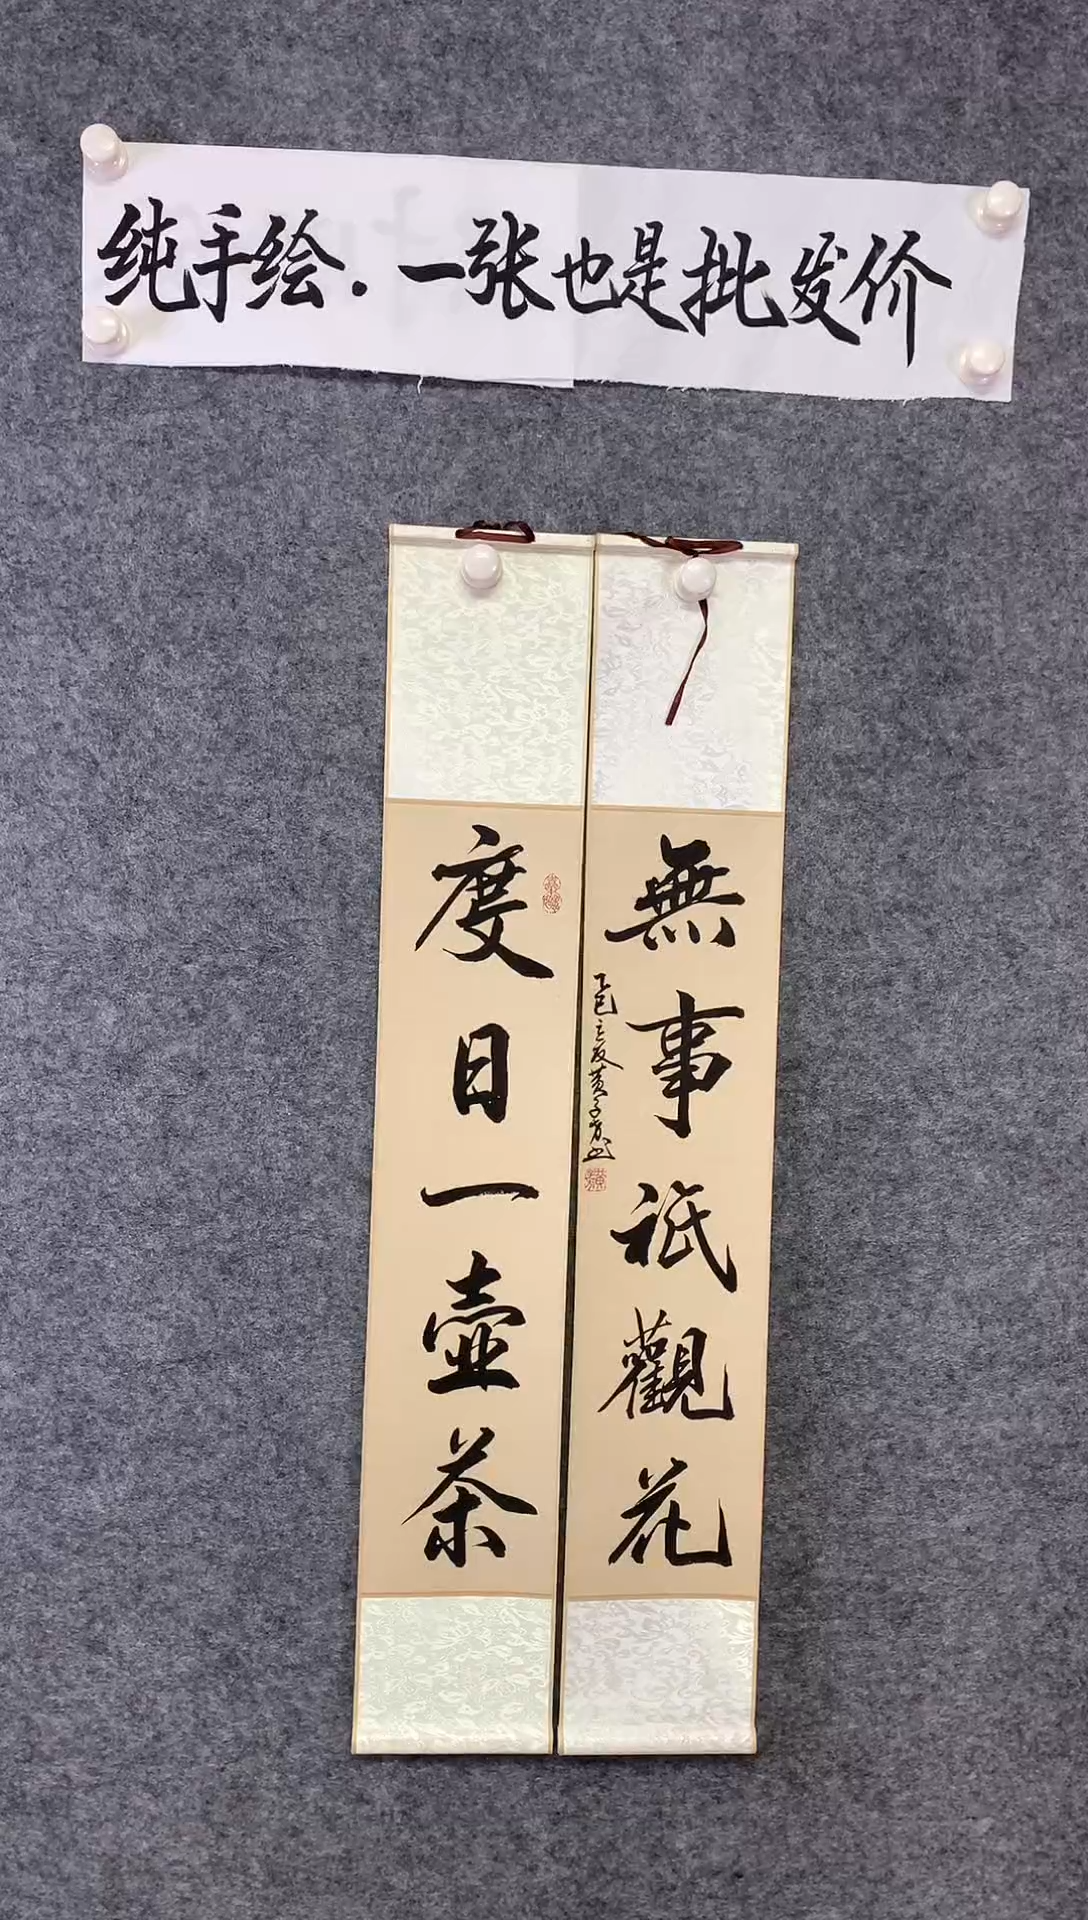 纯手绘.一张也是批发价
無事祇觀花
度日一壺茶